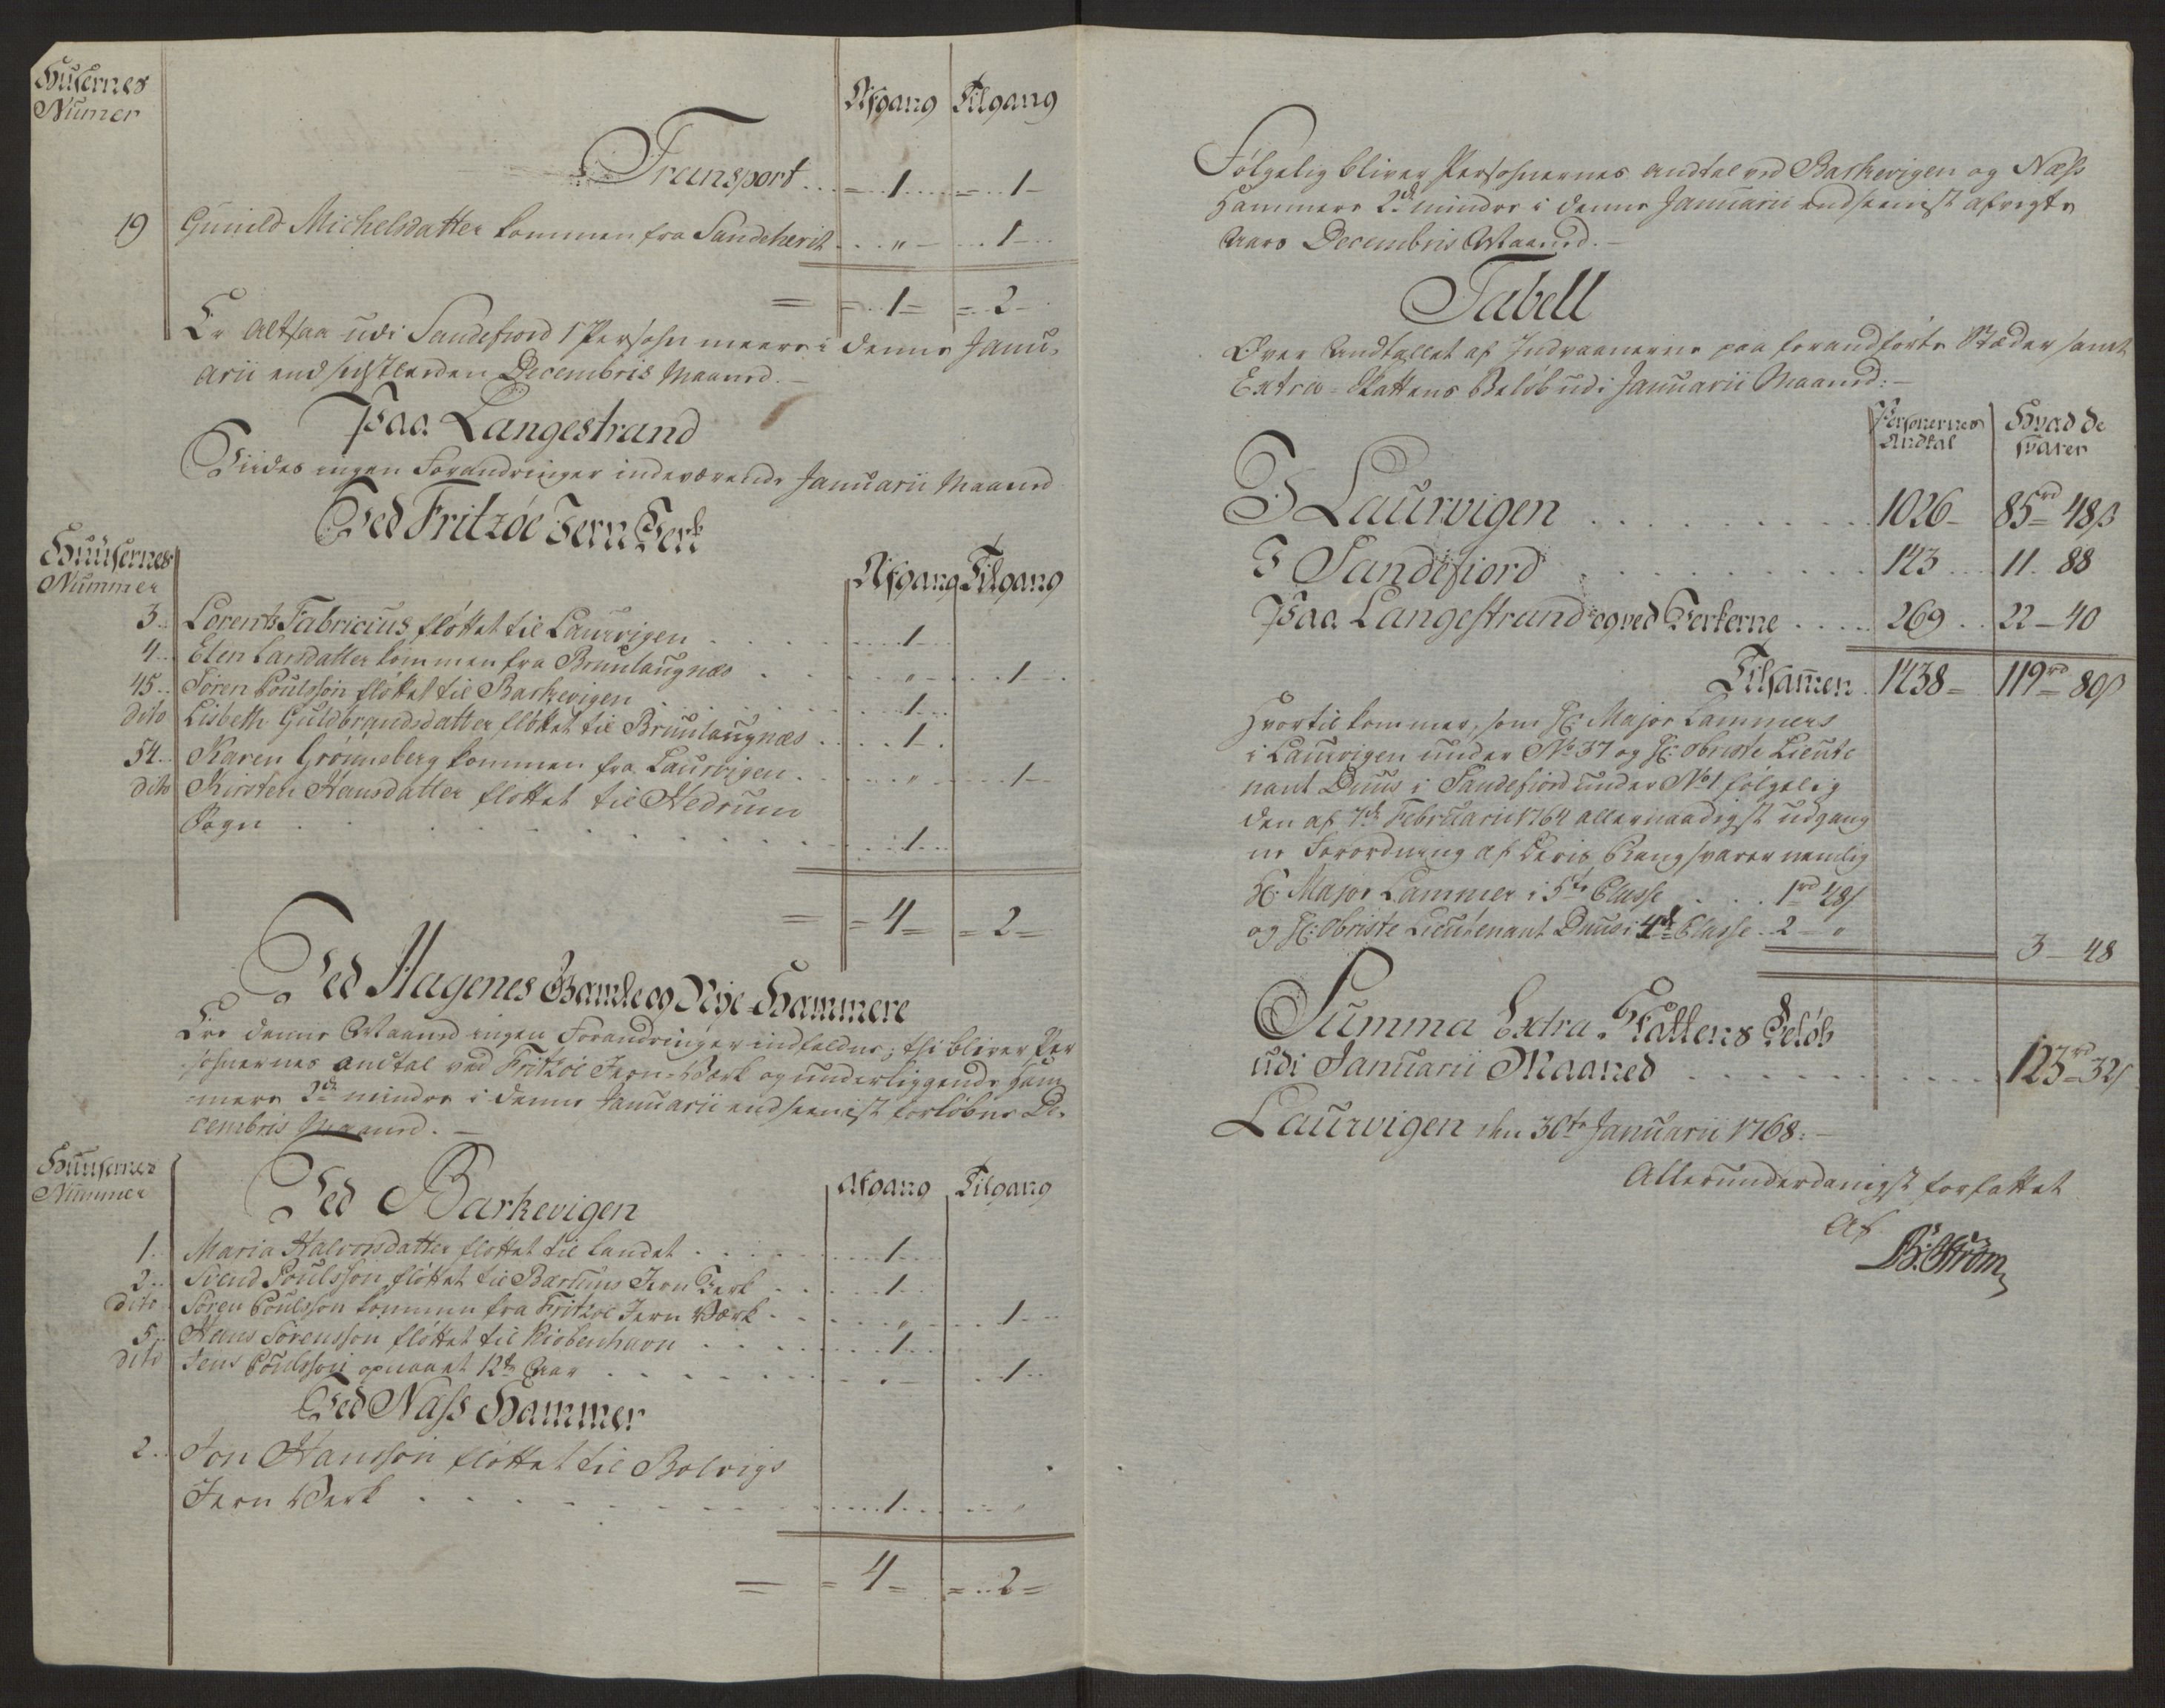 Husernes
Numer
Afgang Tilgang
Transport . . = . . 1 . . . = . . 1 –
19 Gunild Michelsdatter kommen fra Sandeherit . . . " – . . . 1 – . .
= = . . 1 = = . . 2 –
Er altsaa udi Sandefiord 1 Persohn meere i denne Janu-
arii end sidstleeden Decembris Maaned. –
Paa Langestrand
Fiides ingen Forandringer indeværende Januarii Maaned
Ved Fritzöe Jern Verk
Huusernes
Nummer
Afgang Tilgang
3 . . Lorentz Fabricius flöttet til Laurvigen . . . . 1 . .
4 . . Elen Larsdatter kommen fra Brunlaugnæs . . . " . . . 1 – .
45 . . Sören Poulsson flöttet til Barkevigen . . . . 1 . .
dito Lisbeth Guldbrandsdatter flöttet til Brunlaugnæs . . . . 1 – .
54 . . Karen Grönneberg kommen fra Laurvigen . . . . " . . . 1 – .
dito Kirsten Hansdatter flöttet til Hedrum
Sogn . . . . . . . 1 . . .
= = 4 = = 2 =
Ved Hagenes Gamle og Nÿe Hammere
Ere denne Maaned ingen Forandringer indfaldne; thi bliver Per
sohnernes andtal ved Fritzöe Jern-Værk og underliggende Ham
mere 2de mindre i denne Januarii end seenist forløbne De-
cembris Maaned. –
Huusernes
Nummer
Ved Barkevigen
Afgang Tilgang
1 . . Maria Halvorsdatter flöttet til Landet . . . . . 1 . . .
2 . . Svend Poulsson flöttet til Bærums Jern Verk . . . . 1 . . .
dito Sören Poulsson kommen fra Fritzöe Jern Værk . . . . " . . . 1 . . .
5 . . Hans Sörensson flöttet til Kiöbenhavn . . . . . 1 . . .
dito Jens Poulsson opnaaet 12te Aar . . . . . . – . . 1 . . .
Ved Næss Hammer
2 . . Jon Hansson flöttet til Bolvigs
Jern Verk . . . . . . . 1 . . . . . "
= = 4 = = . . 2 =
Følgelig bliver Persohnernes Andtal ved Barkevigen og Næss
Hammere 2de mindre i denne Januarii end seenist afvigte
Aars Decembris Maaned. –
Tabell
Over Andtallet af Indvaanerne paa forandförte Stæder samt
Extra-Skattens Belöb udi Januarii Maaned: –
Personernes Andtal
Hvad de svarer
I Laurvigen . . . . . . . 1026 – 85rd 48ß
I Sandefiord . . . . . . . 143 . . . 11 . 88
Paa Langestrand og ved Verkerne . . . . 269 . . 22 – 40
Tilsammen . 1438 = 119rd 80ß
Hvortil kommer, som Hr. Major Lammers
i Laurvigen under No 37 og Hr: Obriste Lieute
nant Duus i Sandefiord under No 1 følgelig
den af 7de Februarii 1764 allernaadigst udgang
ne Forordning af Deris Rang svarer nemlig
Hr. Major Lammer i 5te Classe . . . 1rd 48ß
og Hr: Obriste Lieutenant Duus i 4de Classe . 2 – "
3 – 48
Summa Extra Skattens Belöb
udi Januarii Maaned . . . . . . . 123rd 32ß
Laurvigen den 30te Januarii 1768. –
Allerunderdanigst forfattet
Af
B: Ström